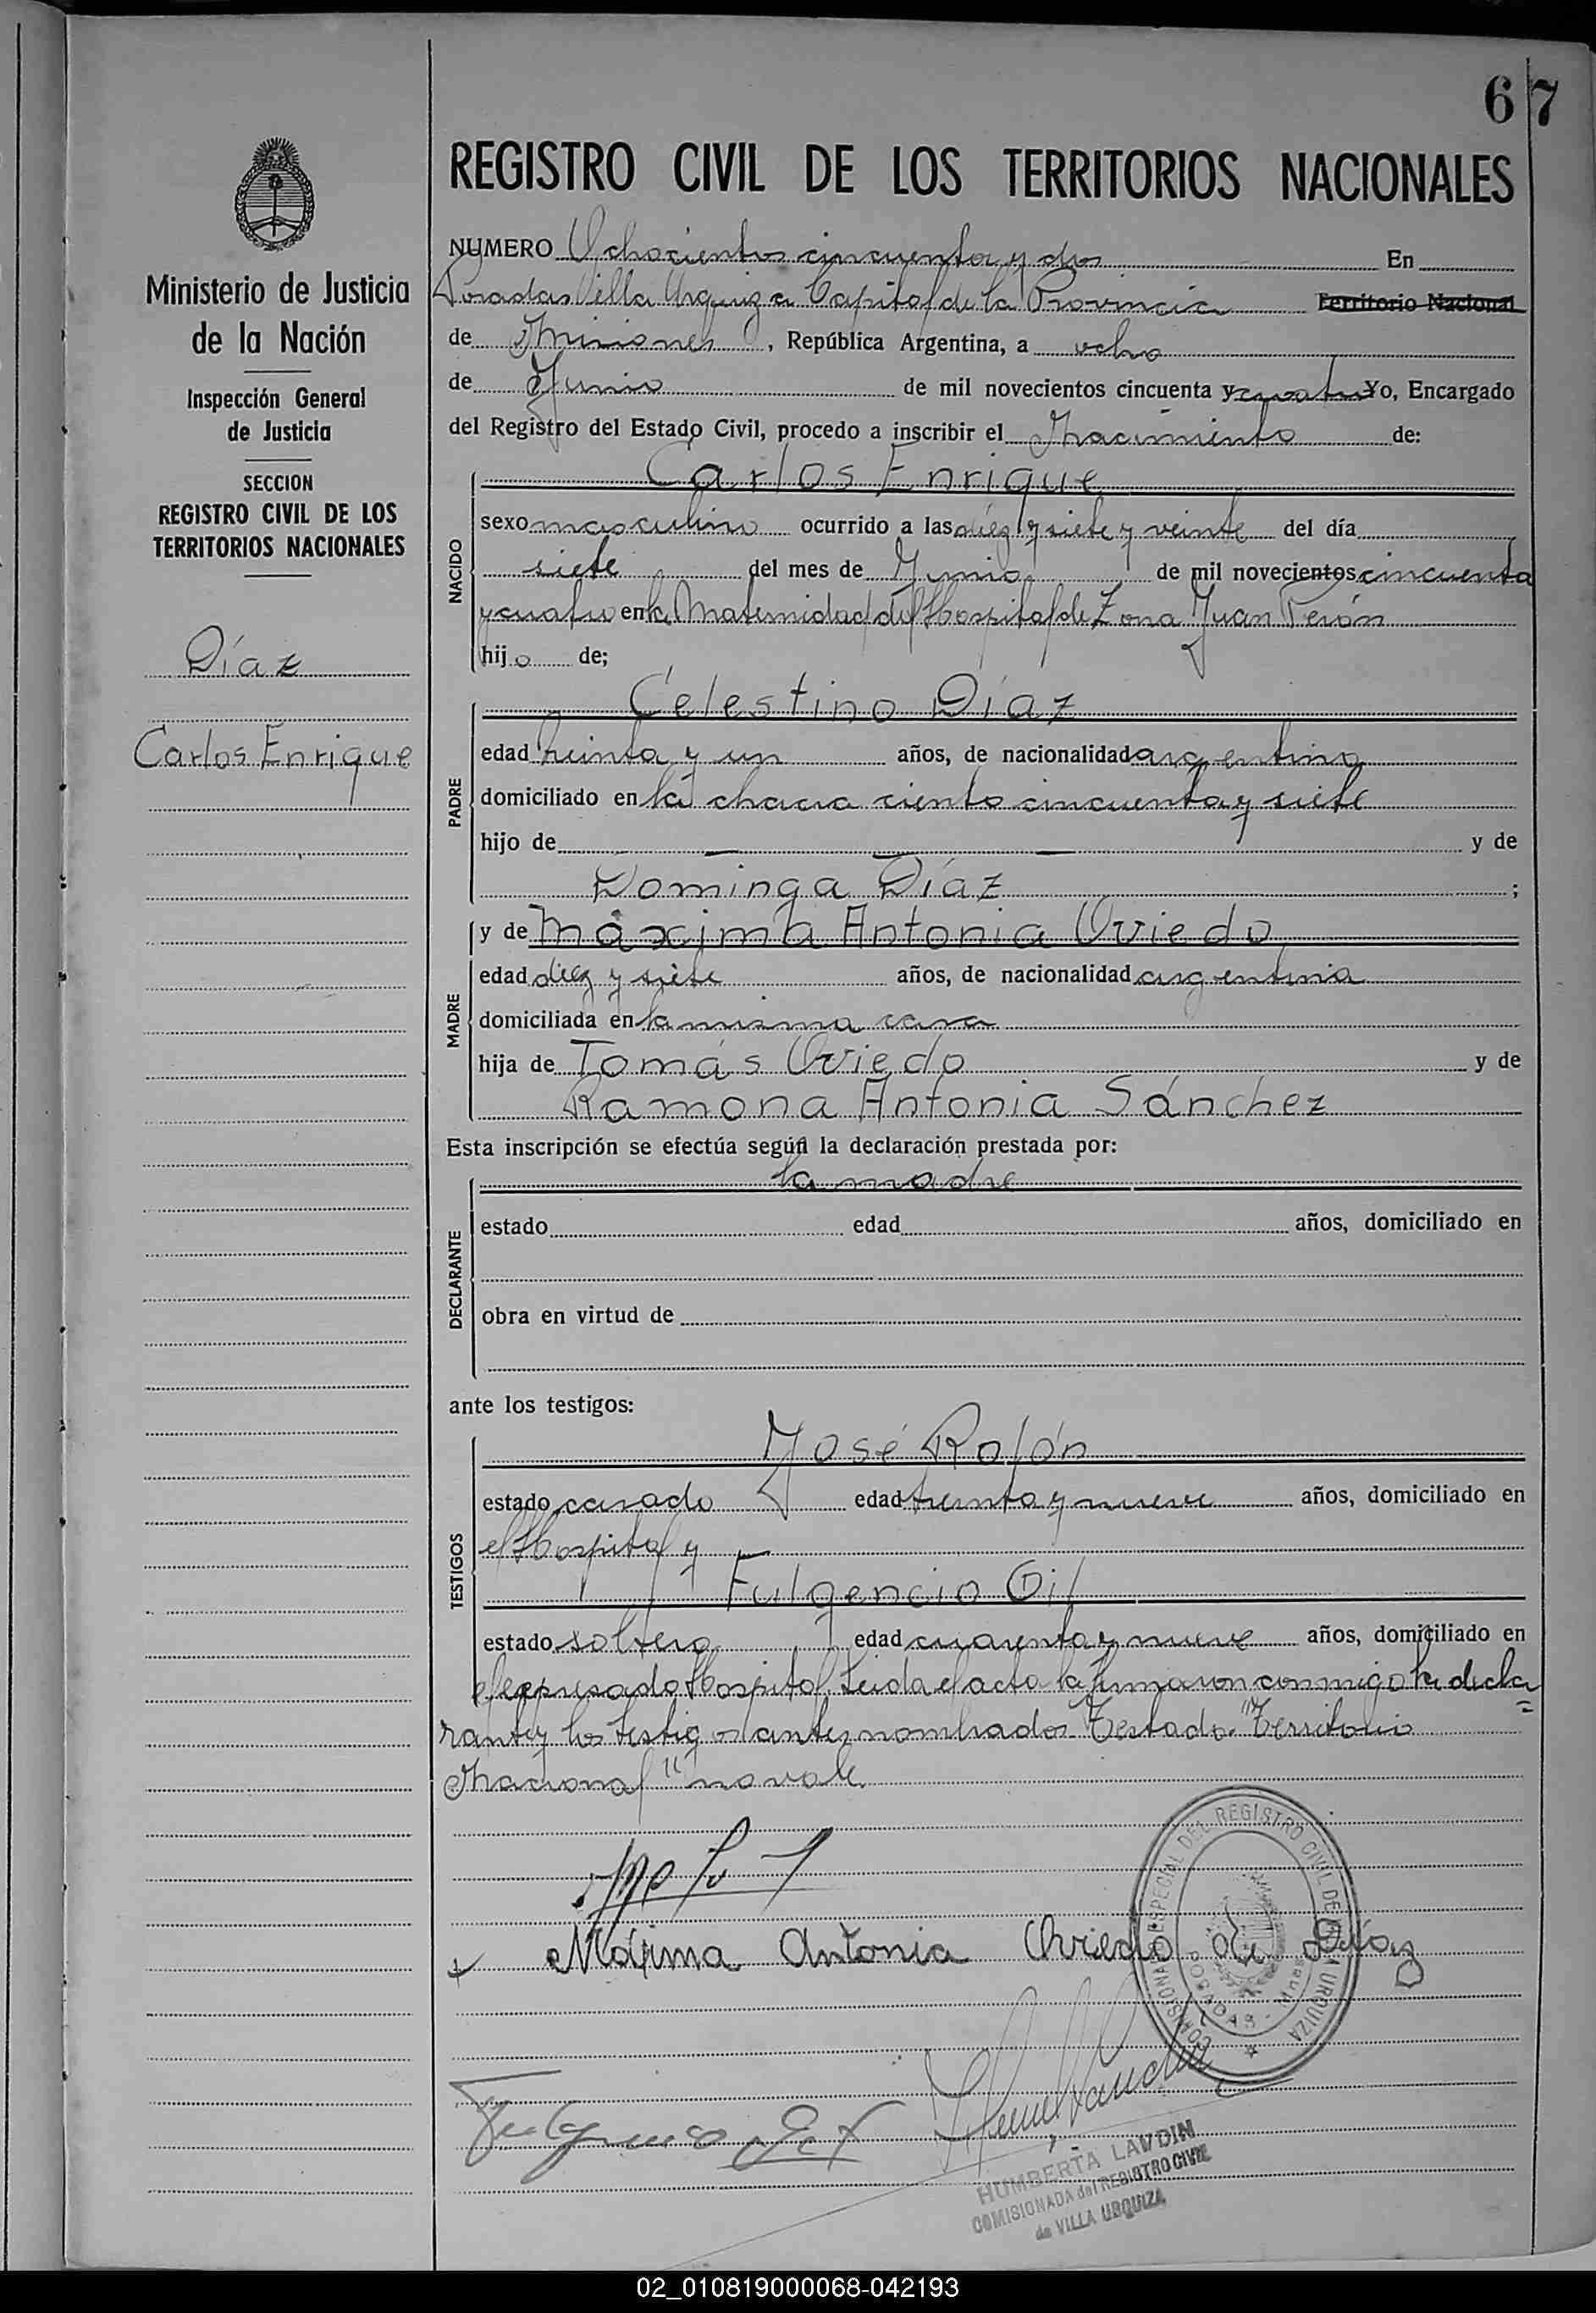 67
REGISTRO CIVIL DE LOS TERRITORIOS NACIONALES
Ministerio de Justicia
de la Nación
Inspección General
de Justicia
SECCION
REGISTRO CIVIL DE LOS
TERRITORIOS NACIONALES
Díaz
Carlos Enrique
NUMERO Ochocientos cincuenta y dos En
Posadas Villa Urquiza Capital de la Provincia Territorio Nacional
de Misiones, República Argentina, a ocho
de Junio de mil novecientos cincuenta y cuatro Yo, Encargado
del Registro del Estado Civil, procedo a inscribir el Nacimiento de:
NACIDO
Carlos Enrique
sexo masculino ocurrido a las diez y siete y veinte del día
siete del mes de Junio de mil novecientos cincuenta
y cuatro en la Maternidad del Hospital de Zona Juan Perón
hijo de;
PADRE
Celestino Díaz
edad treinta y un años, de nacionalidad argentino
domiciliado en la chacra ciento cincuenta y siete
hijo de — — — y de
Dominga Díaz ;
MADRE
y de Máxima Antonia Oviedo
edad diez y siete años, de nacionalidad argentina
domiciliada en la misma casa
hija de Tomás Oviedo y de
Ramona Antonia Sánchez
Esta inscripción se efectúa según la declaración prestada por:
DECLARANTE
la madre
estado edad años, domiciliado en
obra en virtud de
ante los testigos:
TESTIGOS
José Rolón
estado casado edad treinta y nueve años, domiciliado en
el Hospital y
Fulgencio Gil
estado soltero edad cuarenta y nueve años, domiciliado en
el expresado Hospital. Leída el acta la firmaron conmigo la decla=
rante y los testigos antes nombrados. Testado: "Territorio
Nacional" no vale.
Máxima Antonia Oviedo de Díaz
COMISIONADA ESPECIAL DEL REGISTRO CIVIL DE VILLA URQUIZA
POSADAS
Fulgencio Gil
HUMBERTA LAVDIN
COMISIONADA del REGISTRO CIVIL
de VILLA URQUIZA
02_010819000068-042193